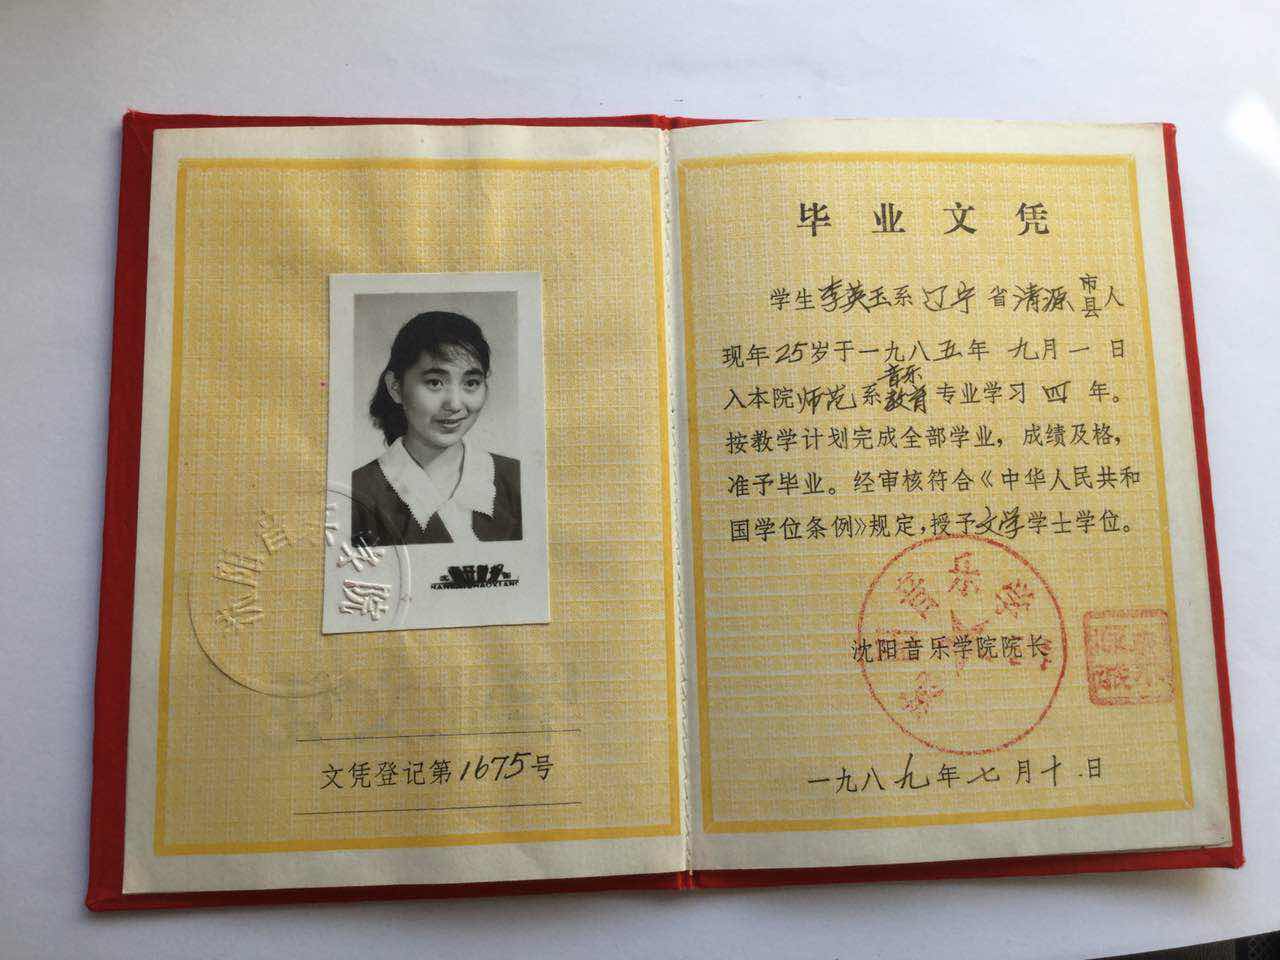 沈阳音乐学院
文凭登记第1675号
毕业文凭
学生李英玉系辽宁省清源市县人
现年25岁于一九八五年九月一日
入本院师范系音乐教育专业学习四年。
按教学计划完成全部学业，成绩及格，
准予毕业。经审核符合《中华人民共和
国学位条例》规定，授予文学学士学位。
沈阳音乐学院院长
一九八九年七月十日